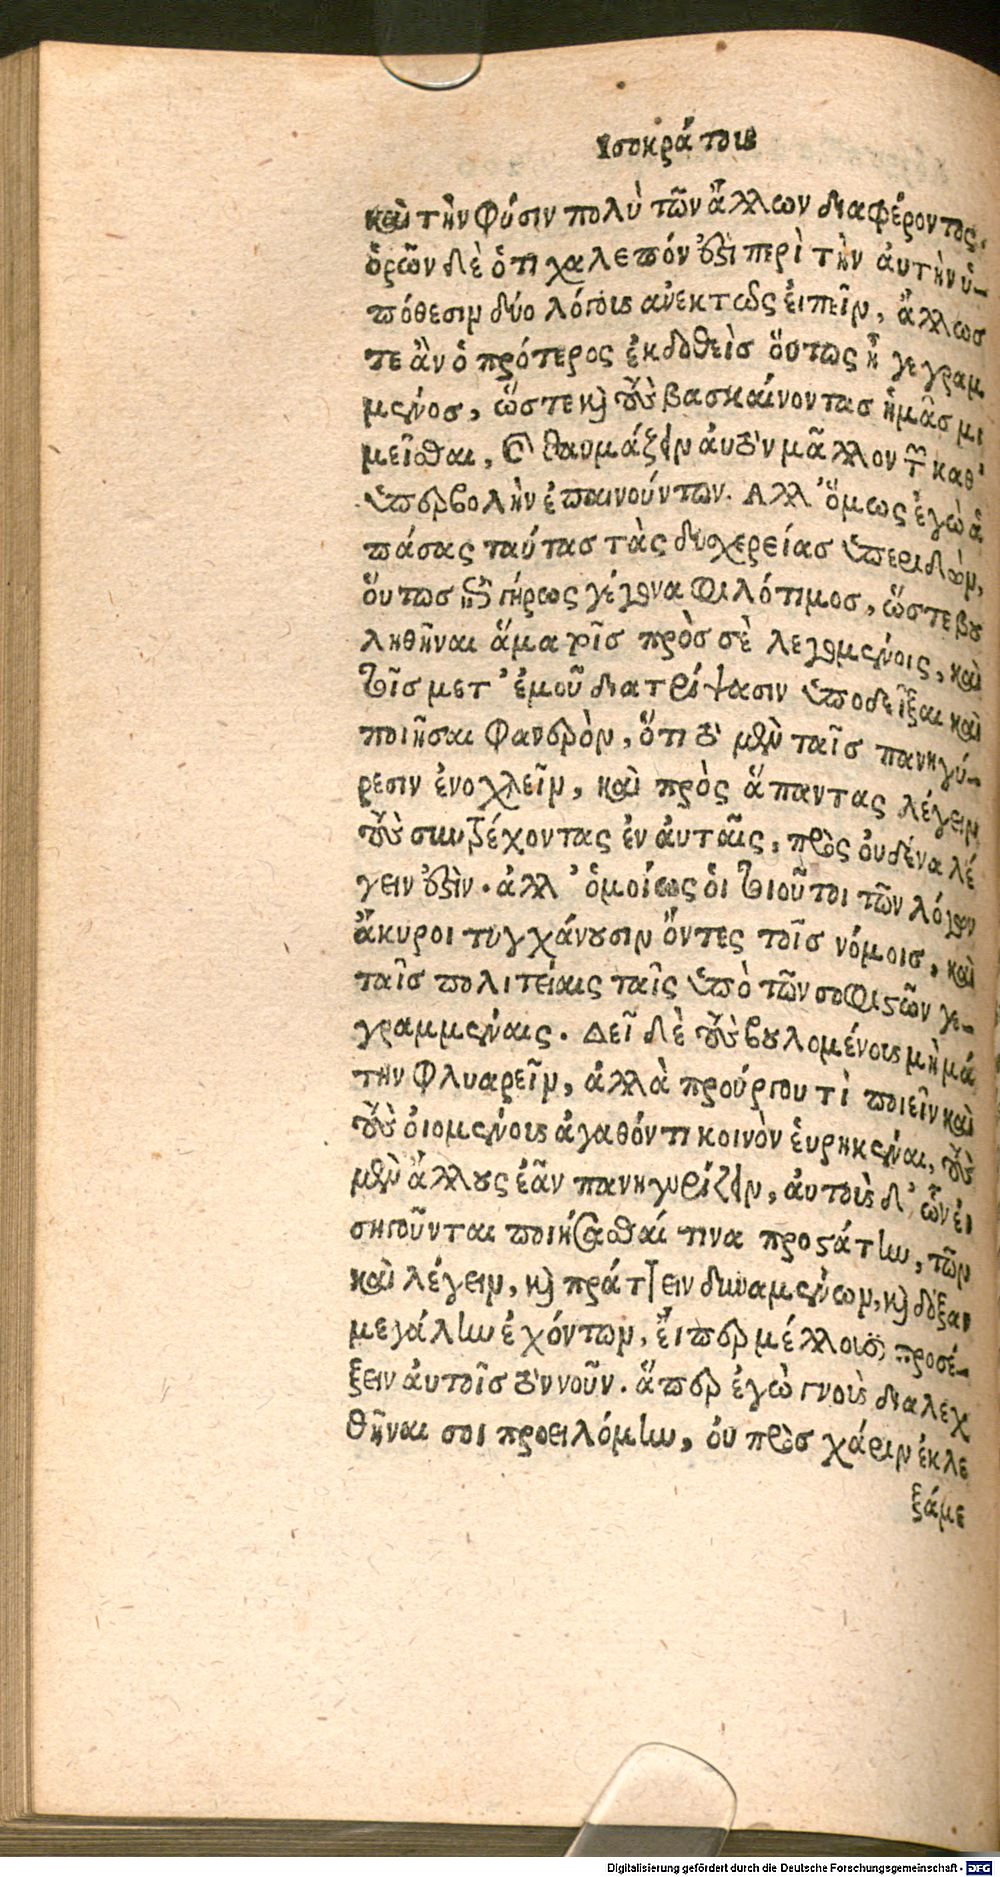 Ἰσοκράτους
καὶ τὴν φύσιν πολὺ τῶν ἄλλων διαφέροντος.
ὁρῶν δὲ ὅτι χαλεπόν ὅξι περὶ τὴν ἀυτὴν ὑ-
πόθεσιν δύο λόγους ἀνεκτῶς ἐιπεῖν, ἄλλως
τε ἂν ὁ πρότερος ἐκδοθεὶς ὅυτως ἦ γεγραμ
μένος, ὥστε καὶ τοὺς βασκαίνοντας ἡμᾶς μι
μεῖσθαι, καὶ θαυμάζειν ἀυτὸν μᾶλλον τῶν καθ'
ὑπερβολὴν ἐπαινούντων. Αλλ' ὅμως ἐγὼ ἁ
πάσας ταύτας τὰς δυσχερείας ὑπεριδὼν,
ὅυτως ἐπὶ γήρως γέγονα φιλότιμος, ὥστε βου
ληθῆναι ἅμα τοῖς πρὸς σὲ λεγομένοις, καὶ
τοῖς μετ' ἐμοῦ διατρίψασιν ὑποδεῖξαι καὶ
ποιῆσαι φανερὸν, ὅτι τὸ μὲν ταῖς πανηγύ-
ρεσιν ἐνοχλεῖν, καὶ πρὸς ἅπαντας λέγειν
τοὺς συντρέχοντας ἐν ἀυταῖς, πρὸς ὀυδένα λέ
γειν ἐστὶν. ἀλλ' ὁμοίως ὁι τοιοῦτοι τῶν λόγων
ἄκυροι τυγχάνουσιν ὄντες τοῖς νόμοις, καὶ
ταῖς πολιτείαις ταῖς ὑπὸ τῶν σοφιστῶν γε-
γραμμέναις. Δεῖ δὲ τοὺς βουλομένους μὴ μά
την φλυαρεῖν, ἀλλὰ προύργου τὶ ποιεῖν καὶ
τοὺς ὀιομένους ἀγαθόν τι κοινὸν ἑυρηκέναι, τοὺς
μὲν ἄλλους ἐᾶν πανηγυρίζειν, ἀυτοὺς δ' ὧν ἐι
σηγοῦνται ποιήσασθαί τινα προστάτην, τῶν
καὶ λέγειν, καὶ πράττειν δυναμένων, καὶ δόξαν
μεγάλην ἐχόντων, ἔιπερ μέλλουσι προσέ-
ξειν ἀυτοῖς τὸν νοῦν. ἅπερ ἐγὼ γνοὺς διαλεχ
θῆναι σοι προειλόμην, ὀυ πρὸς χάριν ἐκλε
ξάμε
Digitalisierung gefördert durch die Deutsche Forschungsgemeinschaft - DFG